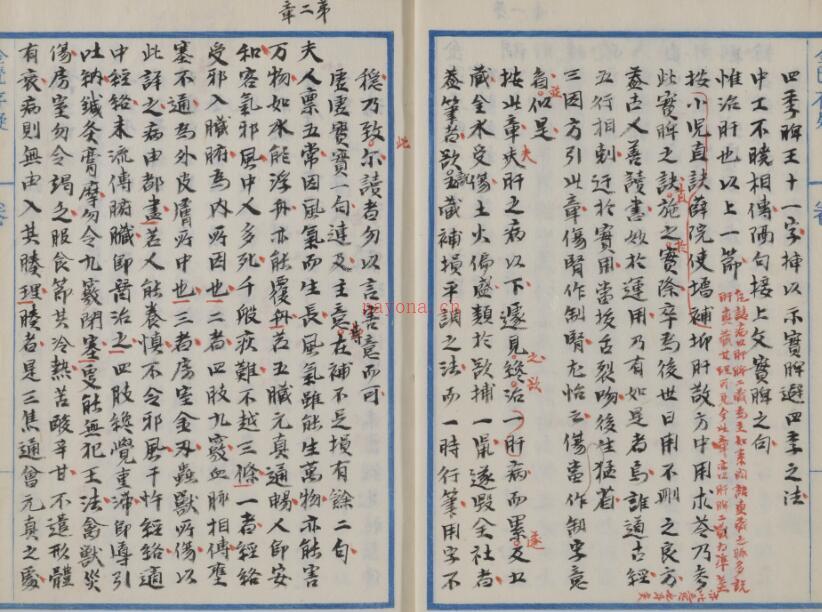 四季脾王十一字挿以示實脾避四季之法
中工不曉相傳隔句接上文實脾之句
惟治肝也以上一節
按小兒直訣薛院使搗補抑肝散方中用朮苓乃考
此實脾之訣施之實際卒為後世日用不刊之良方
蓋古人善讀書妙於運用乃有如是者焉誰道古經
五行相剋迂於實用當拔舌裂吻後生猛省
三因方引此章傷腎作制腎尤怡云傷當作制字意
似是
按此章夫肝之病以下遽見發治一肝病而累及五
藏金水受傷土火偏盛類於欲捕一鼠遂毀全社者
蓋筆者欲至藏補損平調之法而一時行筆用字不
穩乃致尔讀者勿以言害意而可
虛虛實實一句逹及主意在補不足損有餘二句
第二章
夫人禀五常因風氣而生長風氣雖能生萬物亦能害
万物如水能浮舟亦能覆舟若五臟元真通暢人即安
和客氣邪風中人多死千般疢難不越三條一者經絡
受邪入臟腑為内所因也二者四肢九竅血脈相傳壅
塞不通為外皮膚所中也三者房室金刃蟲獸所傷以
此詳之病由都盡若人能養慎不令邪風干忤經絡適
中經絡未流傳腑臟即醫治之四肢纔覺重滯即導引
吐納鍼灸膏摩勿令九竅閉塞更能無犯王法禽獸災
傷房室勿令竭乏服食節其冷熱苦酸辛甘不遺形體
有衰病則無由入其腠理腠者是三焦通會元真之處
nayona.cn